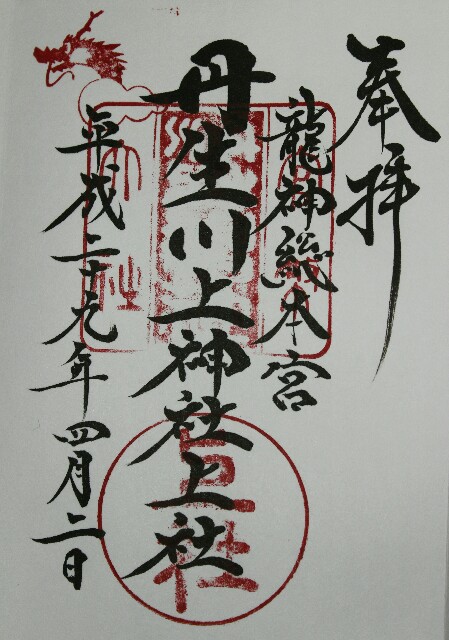 奉拝
龍神総本宮
丹生川上神社上社
平成二十九年四月二日
上社